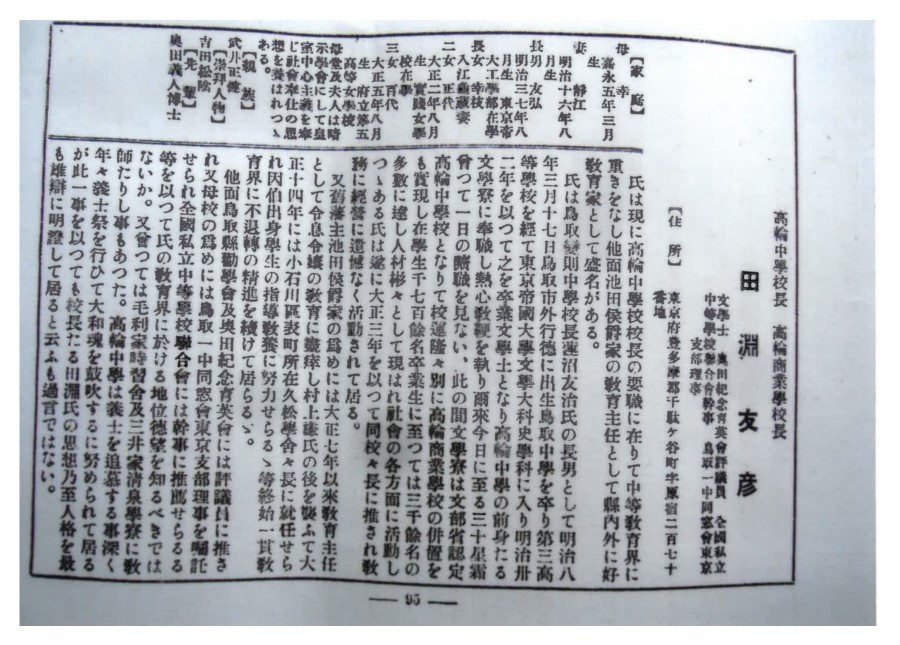 高輪中學校長　高輪商業學校長
田淵友彦
文學士　奥田紀念育英會評議員　全國私立
中等學校聯合會幹事　鳥取一中同窓會東京
支部理事
【住所】
東京府豊多摩郡千駄ケ谷町字原宿二百七十
番地
氏は現に高輪中學校校長の要職に在りて中等敎育界に
重きをなし他面池田侯爵家の敎育主任として縣內外に好
敎育家として盛名がある。
氏は鳥取變則中學校長蓮沼友治氏の長男として明治八
年三月十七日鳥取市外行德に出生鳥取中學を卒り第三高
等學校を經て東京帝國大學文學大科史學科に入り明治卅
二年を以つて之を卒業文學士となり高輪中學の前身たる
文學寮に奉職し熱心敎鞭を執り爾來今日に至る三十星霜
曾つて一日の曠職を見ない、此の間文學寮は文部省認定
高輪中學校となりて校運隆々別に高輪商業學校の併置を
も實現し在學生千七百餘名卒業生に至つては三千餘名の
多數に達し人材彬々として現はれ社會の各方面に活動し
つゝある氏は遂に大正三年を以つて同校々長に推され敎
務に經營に遺憾なく活動されて居る。
又舊藩主池田侯爵家の爲めには大正七年以來敎育主任
として令息令孃の敎育に盡瘁し村上氏の後を襲ふて大
正十四年には小石川區表町所在久松學舍々長に就任せら
れ因伯出身學生の指導敎養に努力せらるゝ等終始一貫敎
育界に不退轉の精進を續けて居らるゝ。
他面鳥取縣勸學會及奥田紀念育英會には評議員に推さ
れ又母校の爲めには鳥取一中同窓會東京支部理事を囑託
せられ全國私立中等學校聯合會には幹事に推薦せらるる
等を以つて氏の敎育界に於ける地位德望を知るべきでは
ないか。又曾つては毛利家時習舍及三井家淸泉學寮に敎
師たりし事もあつた。高輪中學は義士を追慕する事深く
年々義士祭を行ひて大和魂を鼓吹するに努められて居る
が此一事を以つても校長たる田淵氏の思想乃至人格を最
も雄辯に明證して居ると云ふも過言ではない。
【家庭】
母　幸
嘉永五年三月
生
妻　靜江
明治十六年八
月生
長男　友弘
明治三七年八
月生　東京帝
大工學部在學
長女　幸枝
入江藏妻
二女　正代
大正二年八月
生　實踐女學
校在學
三女　百代
大正五年八月
生　府立第五
高等女學校
母堂及夫人は時
示學會にして皇
室中心主義を奉
じ社會奉仕の思
想を養はれつゝ
ある。
【親族】
武井正健
【崇拜人物】
吉田松陰
【先輩】
奥田義人博士
95